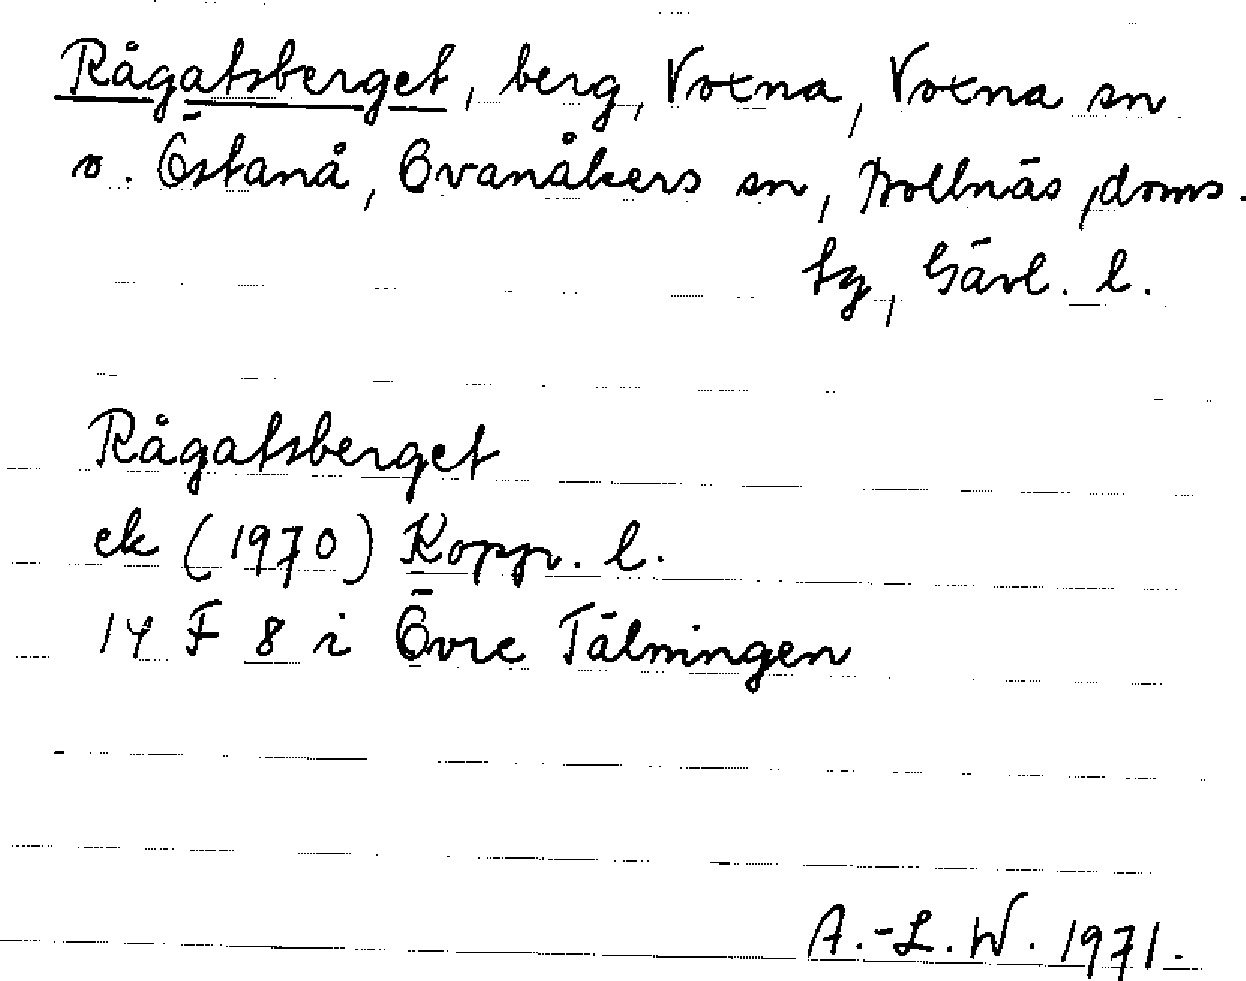 Rågatsberget, berg, Voxna, Voxna sn
o. Östanå, Ovanåkers sn, Bollnäs doms.
tg, Gävl. l.
Rågatsberget
ek (1970) Kopp. l.
14 F 8 i Övre Tälningen
A.-L. W. 1971.